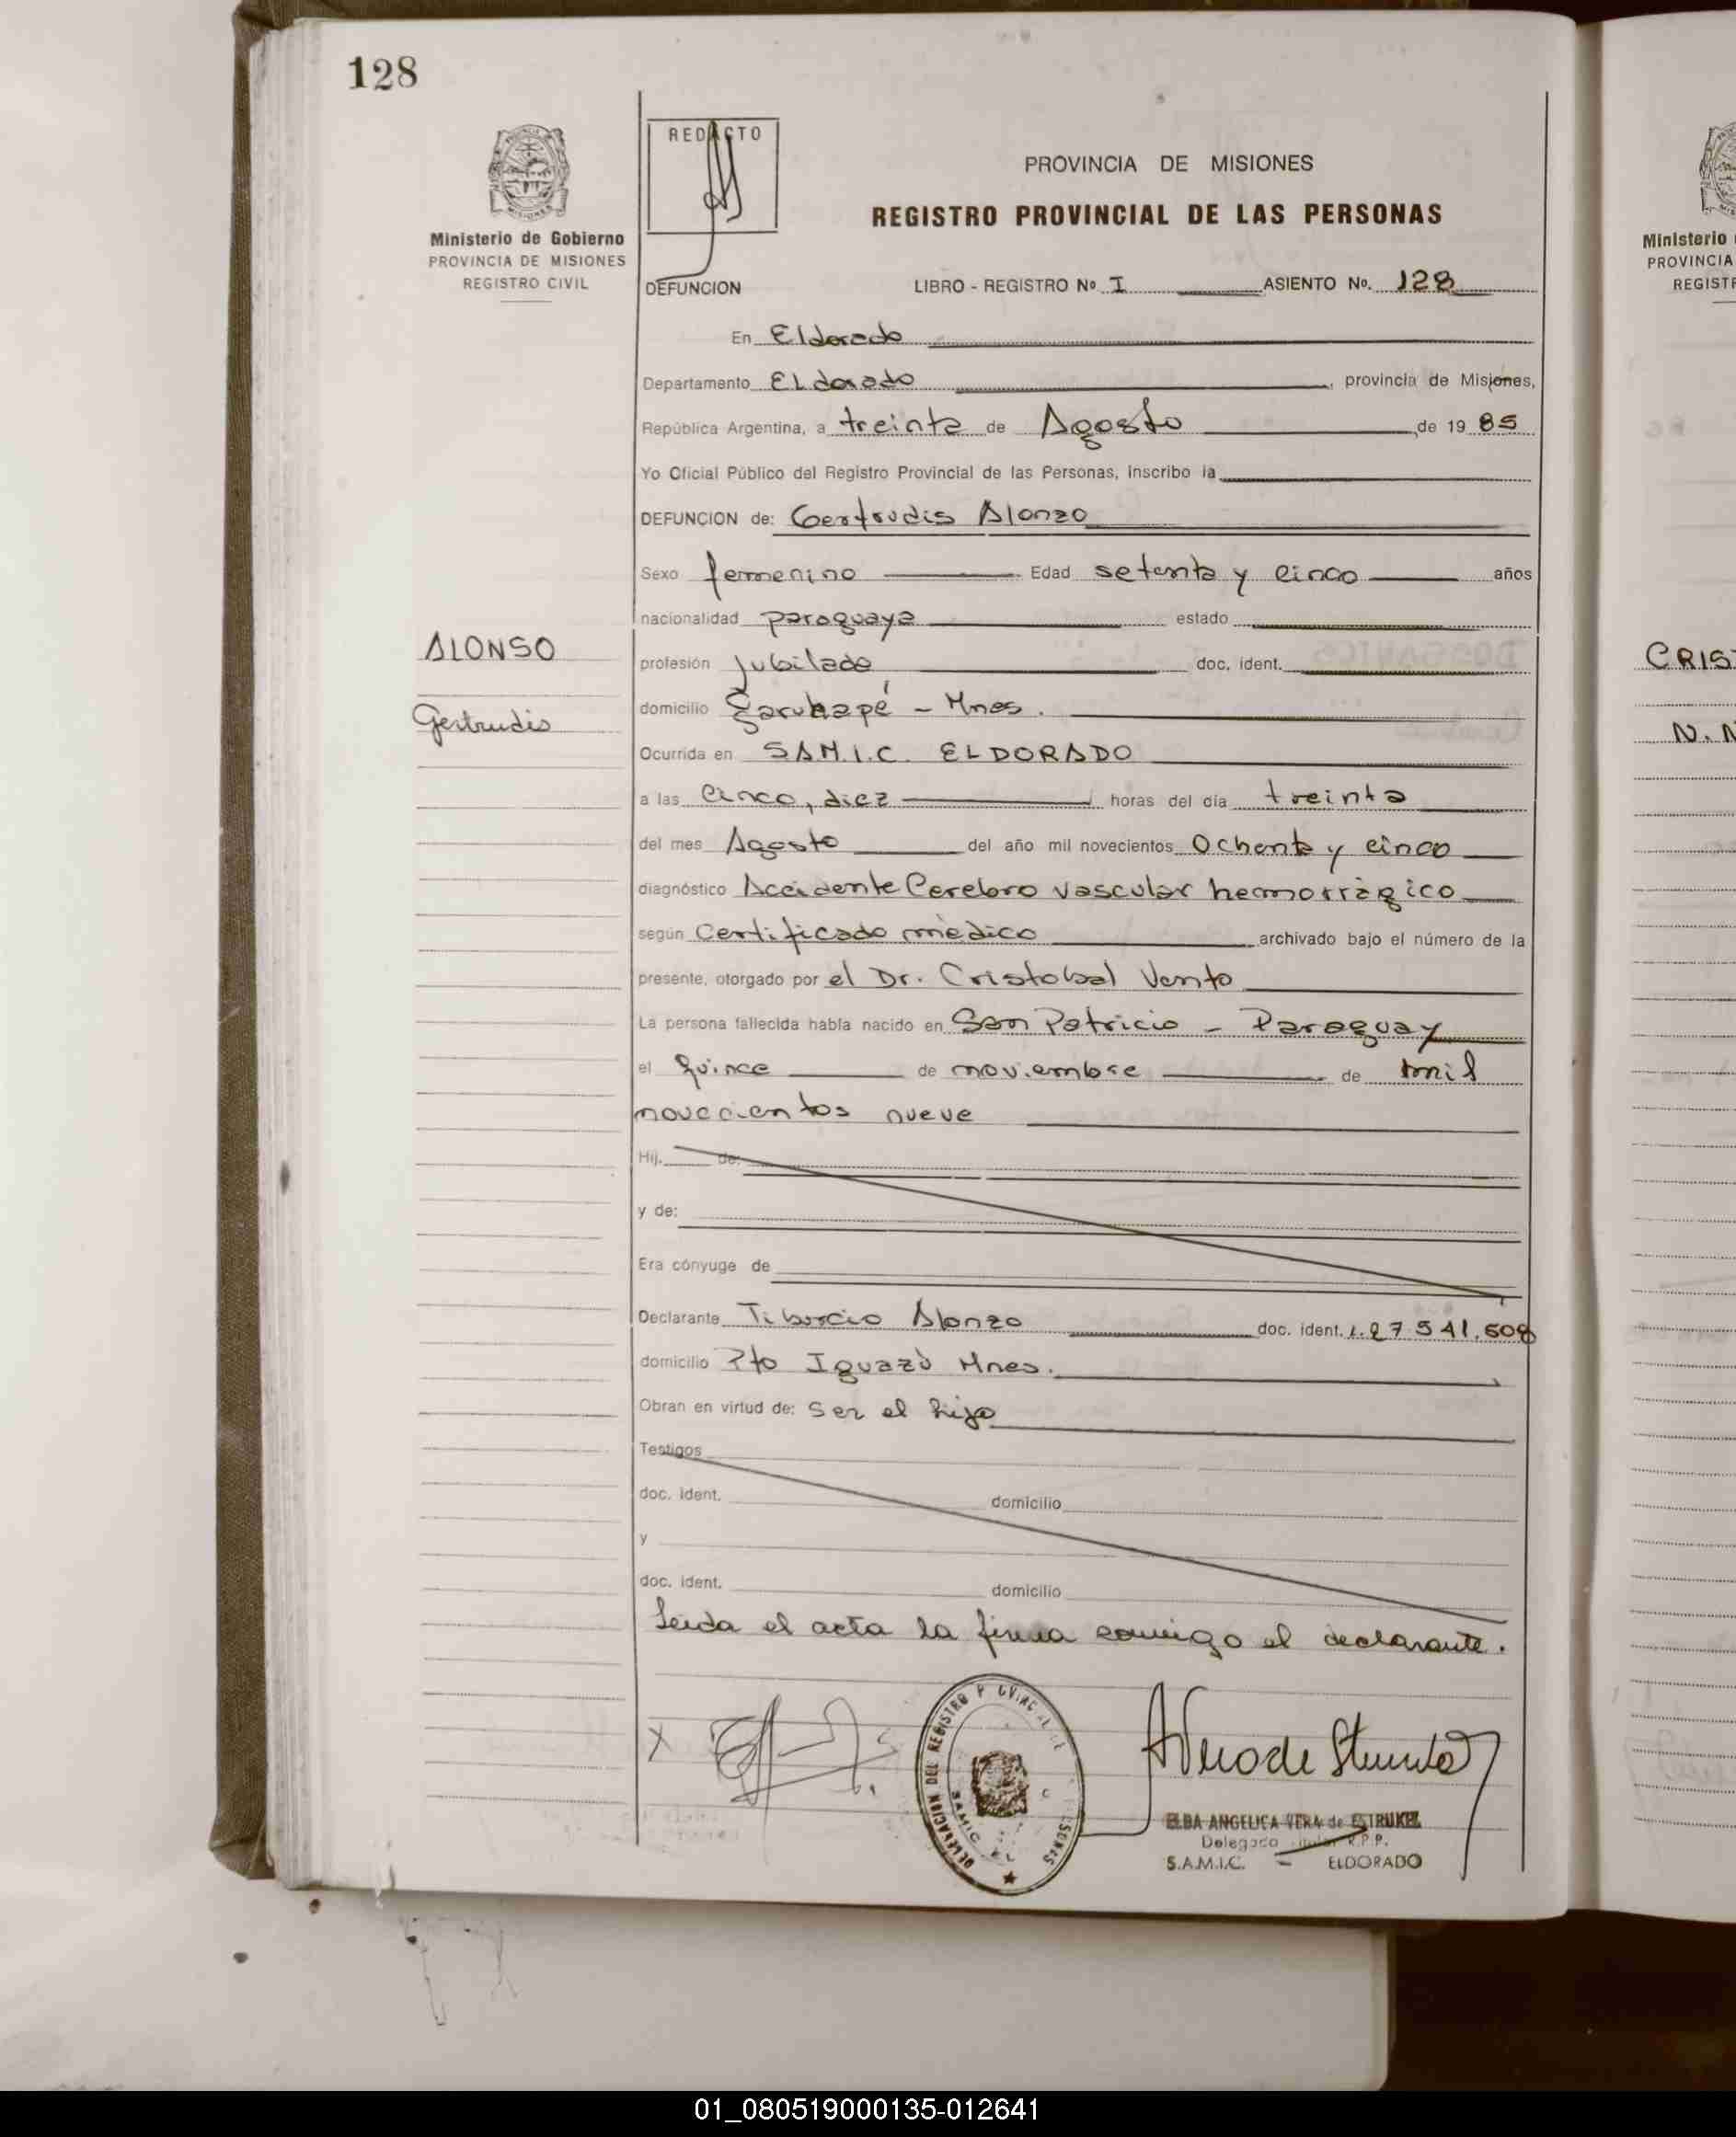 128
Ministerio de Gobierno
PROVINCIA DE MISIONES
REGISTRO CIVIL
REDACTO
PROVINCIA DE MISIONES
REGISTRO PROVINCIAL DE LAS PERSONAS
DEFUNCION LIBRO - REGISTRO Nº I ASIENTO No. 128
En Eldorado
Departamento ELdorado, provincia de Misiones,
República Argentina, a treinta de Agosto de 19 85
Yo Oficial Público del Registro Provincial de las Personas, inscribo la
DEFUNCION de: Gertrudis Alonzo
Sexo femenino Edad setenta y cinco años
nacionalidad paraguaya estado
ALONSO
Gertrudis
profesión Jubilada doc. ident.
domicilio Garuhapé - Mnes.
Ocurrida en SAM.I.C. ELDORADO
a las Cinco, diez horas del día treinta
del mes Agosto del año mil novecientos Ochenta y cinco
diagnóstico Accidente Cerebro vascular hemorràgico
según Certificado mèdico archivado bajo el número de la
presente, otorgado por el Dr. Cristobal Vento
La persona fallecida había nacido en San Patricio - Paraguay
el Quince de noviembre de mil
novecientos nueve
Hij. de:
y de:
Era cónyuge de
Declarante Tiburcio Alonzo doc. ident. 27.541.608
domicilio Pto Iguazù Mnes.
Obran en virtud de: Ser el hijo
Testigos
doc. ident. domicilio
y
doc. ident. domicilio
Leida el acta la firma conmigo el declarante.
X
DELEGACION DEL REGISTRO
SAMIC
ELBA ANGELICA VERA de ESTRUKEL
Delegada Titular R.P.P.
S.A.M.I.C. - ELDORADO
Ministerio
PROVINCIA
REGIST
CRIS
N.
01_080519000135-012641